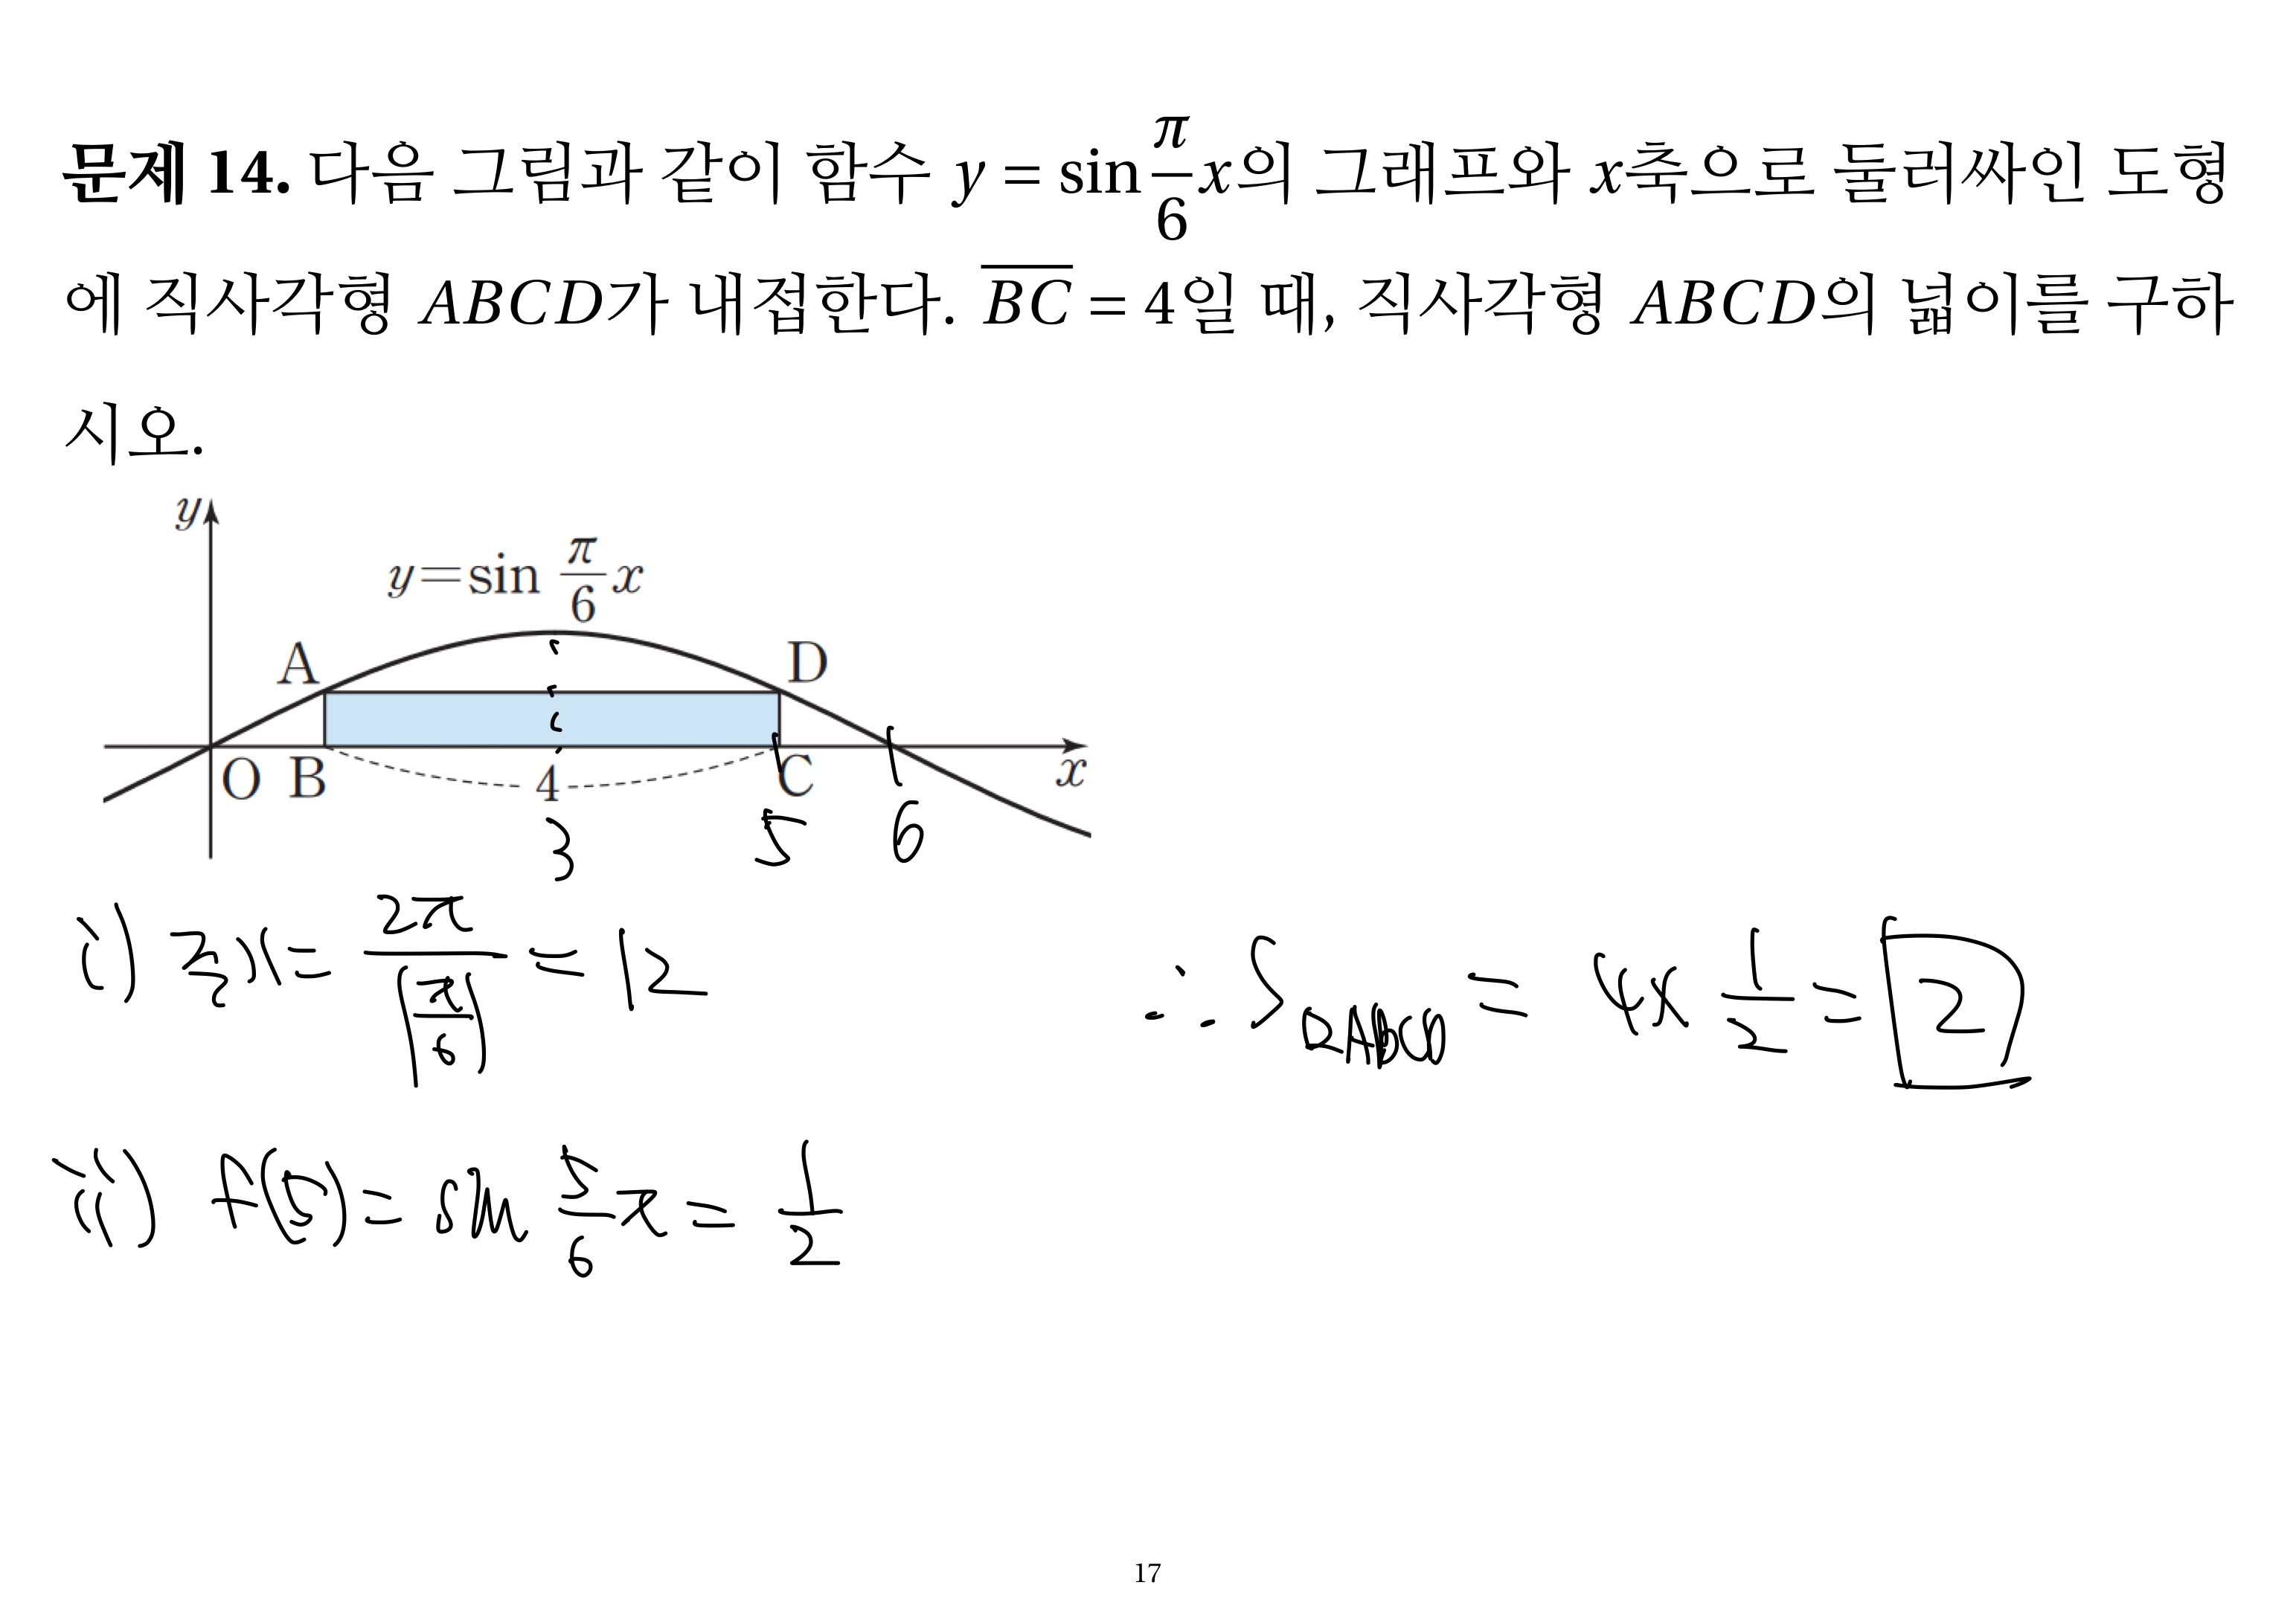 문제 14. 다음 그림과 같이 함수 y = sin π/6 x의 그래프와 x축으로 둘러싸인 도형
에 직사각형 ABCD가 내접한다. BC = 4일 때, 직사각형 ABCD의 넓이를 구하
시오.
y
y=sin π/6 x
A D
O B 4 C x
3 5 6
i) 주기= 2π/|π/6| = 12
∴ S□ABCD = 4× 1/2 = 2
ii) f(5)= sin 5/6 π = 1/2
17